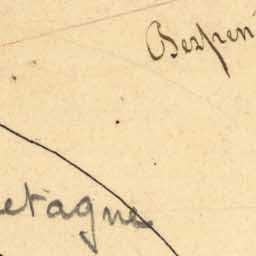 Berpen
etagne